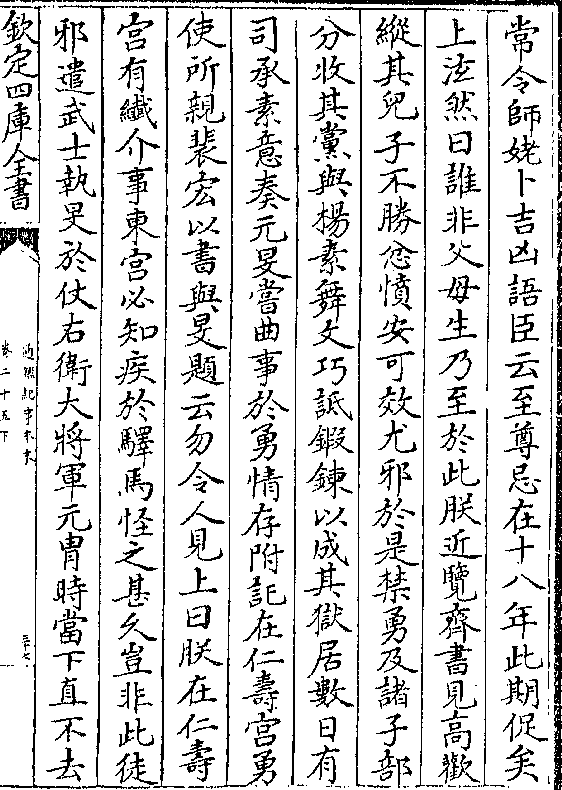 常令師姥卜吉凶語臣云至尊忌在十八年此期促矣
上泫然曰誰非父母生乃至於此朕近覽齊書見高歡
縱其兒子不勝忿憤安可效尤邪於是禁勇及諸子部
分收其黨與楊素舞文巧詆鍛鍊以成其獄居數日有
司承素意奏元旻嘗曲事於勇情存附託在仁壽宫勇
使所親裴宏以書與旻題云勿令人見上曰朕在仁壽
宫有纎介事東宫必知疾於驛馬怪之甚久豈非此徒
邪遣武士執旻於仗右衛大將軍元胄時當下直不去
欽定四庫全書
通鑑紀事本末
卷二十五下
三十七